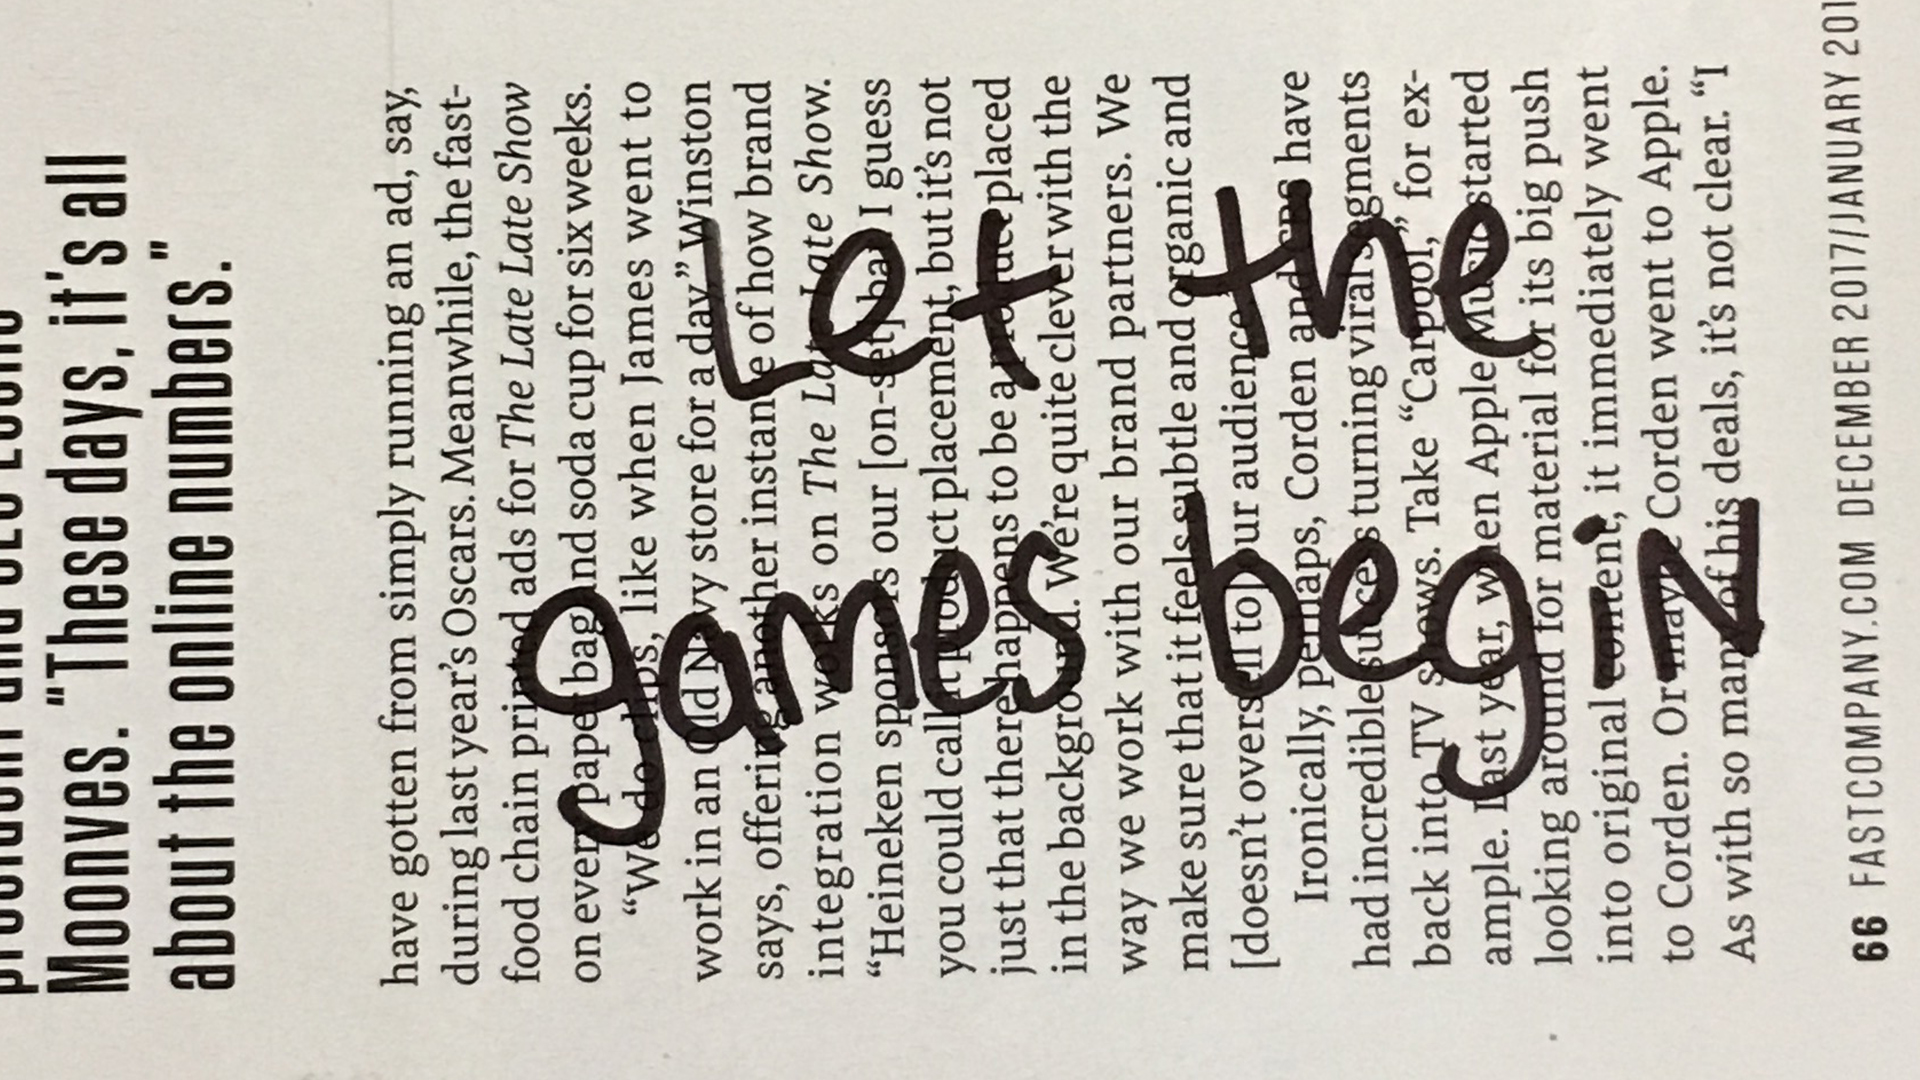 Moonves. "These days, it's all
about the online numbers."
have gotten from simply running an ad, say,
during last year's Oscars. Meanwhile, the fast-
food chain printed ads for The Late Late Show
on every paper bag and soda cup for six weeks.
"We do clips, like when James went to
work in an Old Navy store for a day," Winston
says, offering another instance of how brand
integration works on The Late Late Show.
"Heineken sponsors our [on-set] bar. I guess
you could call it product placement, but it's not
just that there happens to be a product placed
in the background. We're quite clever with the
way we work with our brand partners. We
make sure that it feels subtle and organic and
[doesn't oversell to] our audience."
Ironically, perhaps, Corden and CBS have
had incredible success turning viral segments
back into TV shows. Take "Carpool," for ex-
ample. Last year, when Apple Music started
looking around for material for its big push
into original content, it immediately went
to Corden. Or maybe Corden went to Apple.
As with so many of his deals, it's not clear. "I
66 FASTCOMPANY.COM DECEMBER 2017/JANUARY 201
Let the
games begin